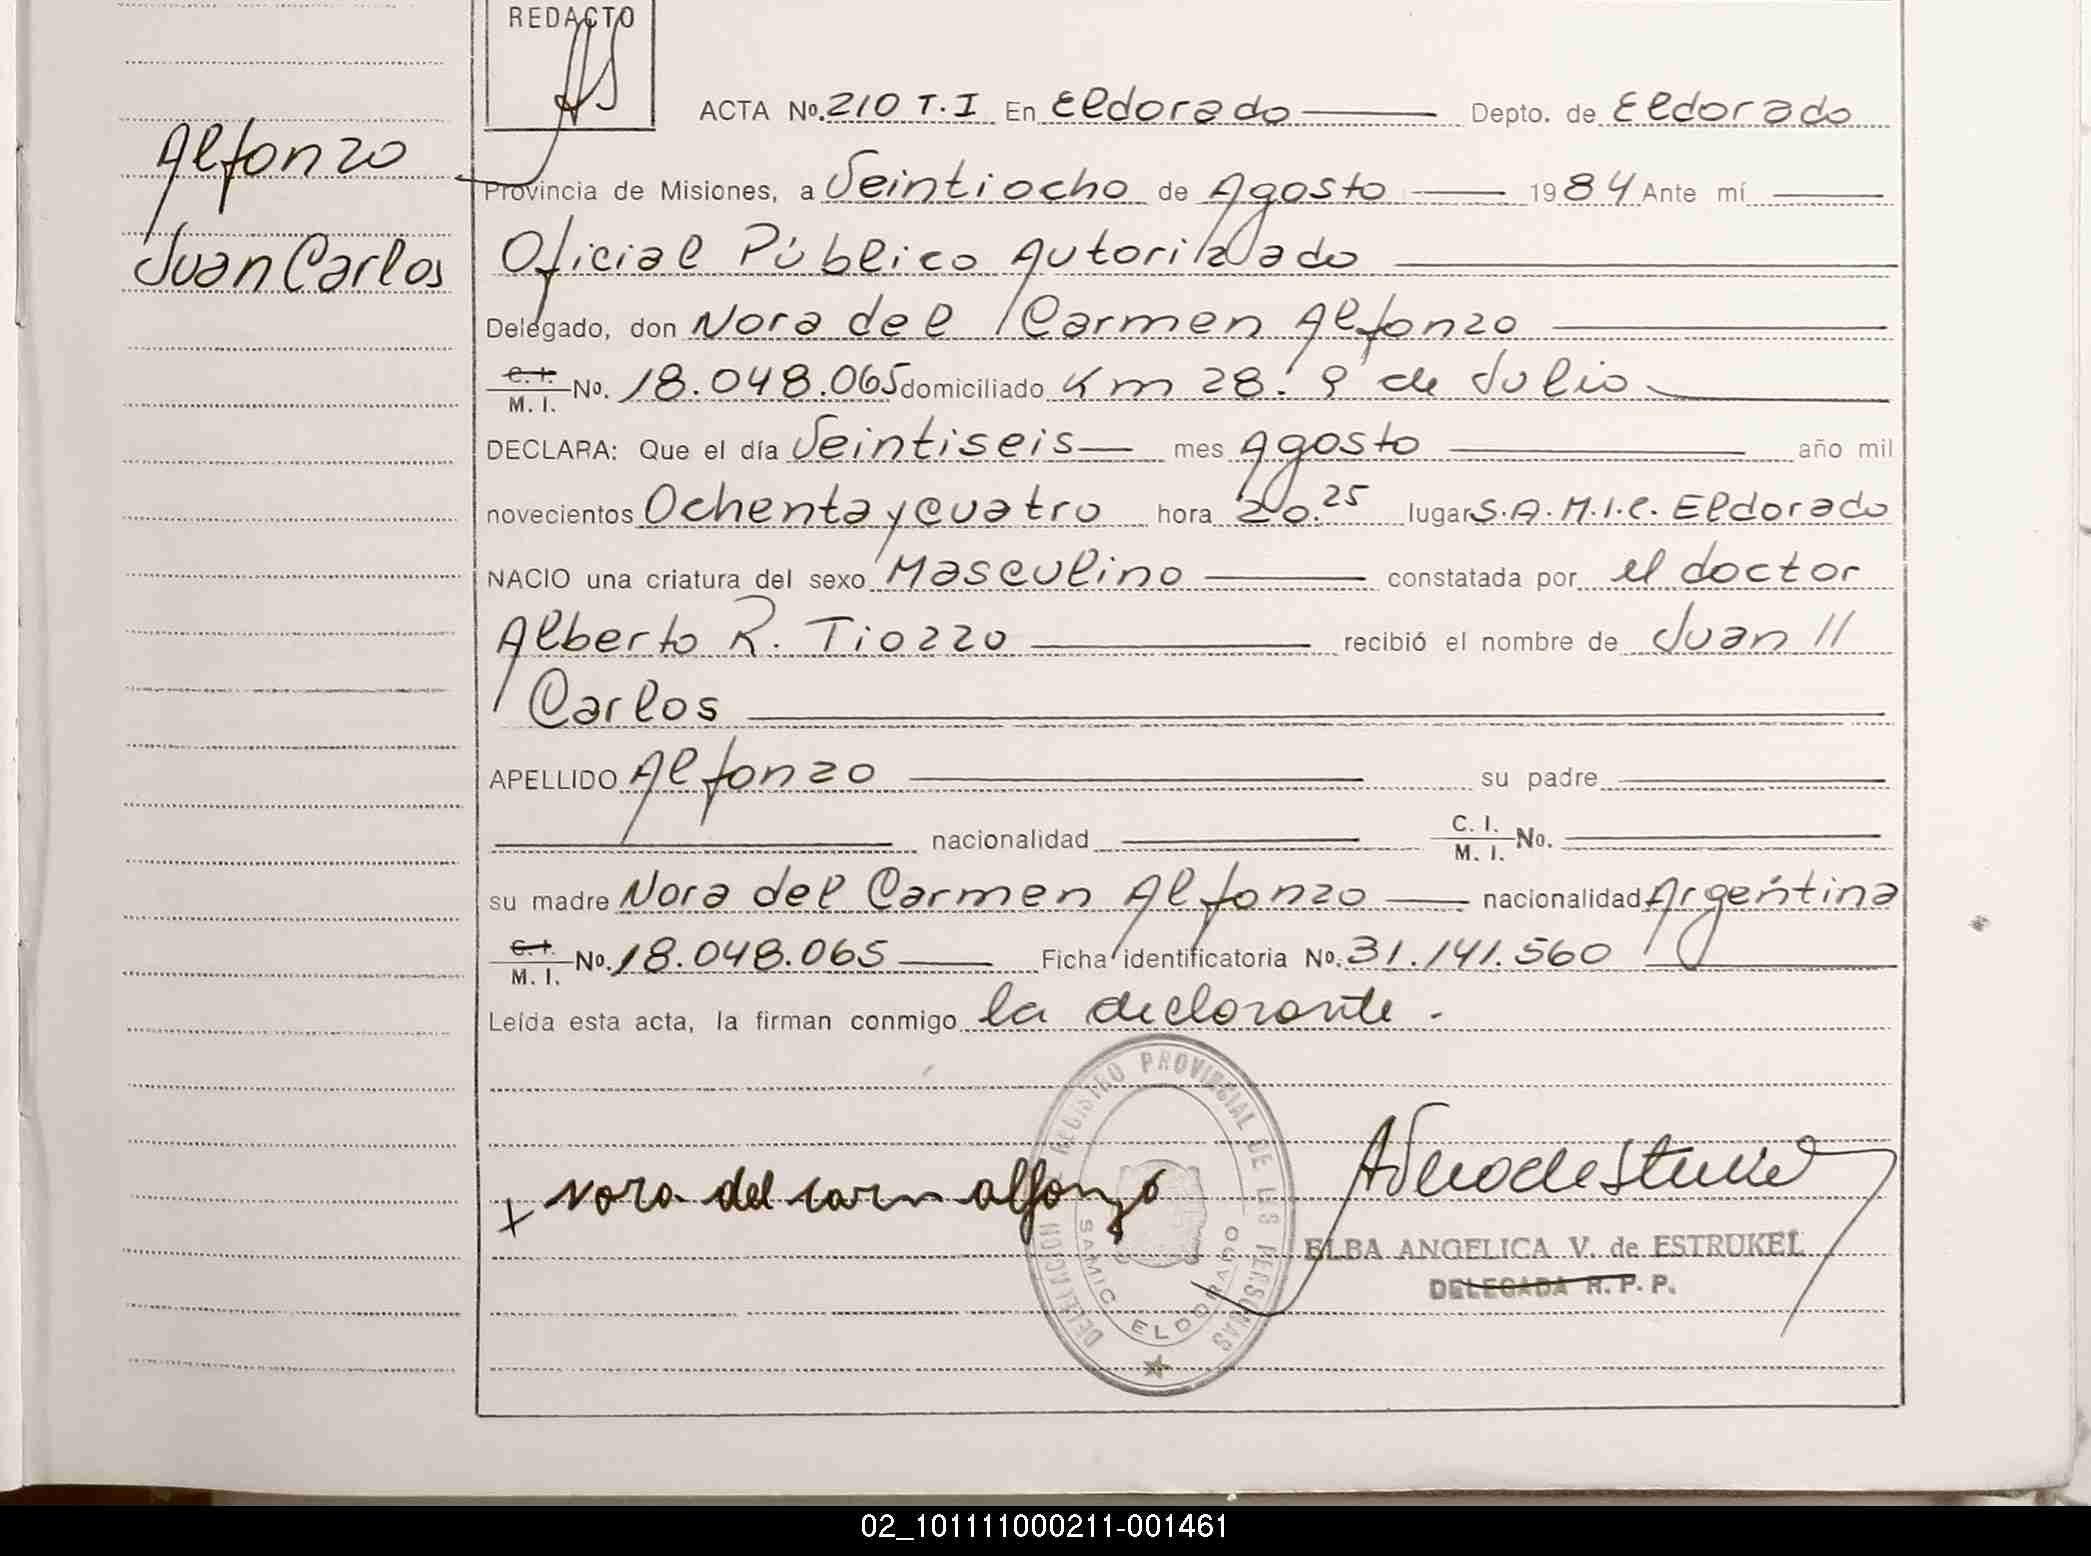 REDACTO
ACTA No. 210 T.I En Eldorado Depto. de Eldorado
Alfonzo
Juan Carlos
Provincia de Misiones, a Veintiocho de Agosto 1984 Ante mí
Oficial Público Autorizado
Delegado, don Nora del Carmen Alfonzo
C. I.
M. I. No. 18.048.065 domiciliado Km 28. 9 de Julio
DECLARA: Que el día Veintiseis mes Agosto año mil
novecientos Ochenta y cuatro hora 20.25 lugar S.A.M.I.C. Eldorado
NACIO una criatura del sexo Masculino constatada por el doctor
Alberto R. Tiozzo recibió el nombre de Juan //
Carlos
APELLIDO Alfonzo su padre
nacionalidad C. I. M. I. No.
su madre Nora del Carmen Alfonzo nacionalidad Argentina
C. I.
M. I. No. 18.048.065 Ficha identificatoria No. 31.141.560
Leída esta acta, la firman conmigo la declarante.
x Nora del carm alfonzo
DELEGACION REGISTRO PROVINCIAL DE LAS PERSONAS
SAMIC ELDORADO
ELBA ANGELICA V. de ESTRUKEL
DELEGADA R. P. P.
02_101111000211-001461